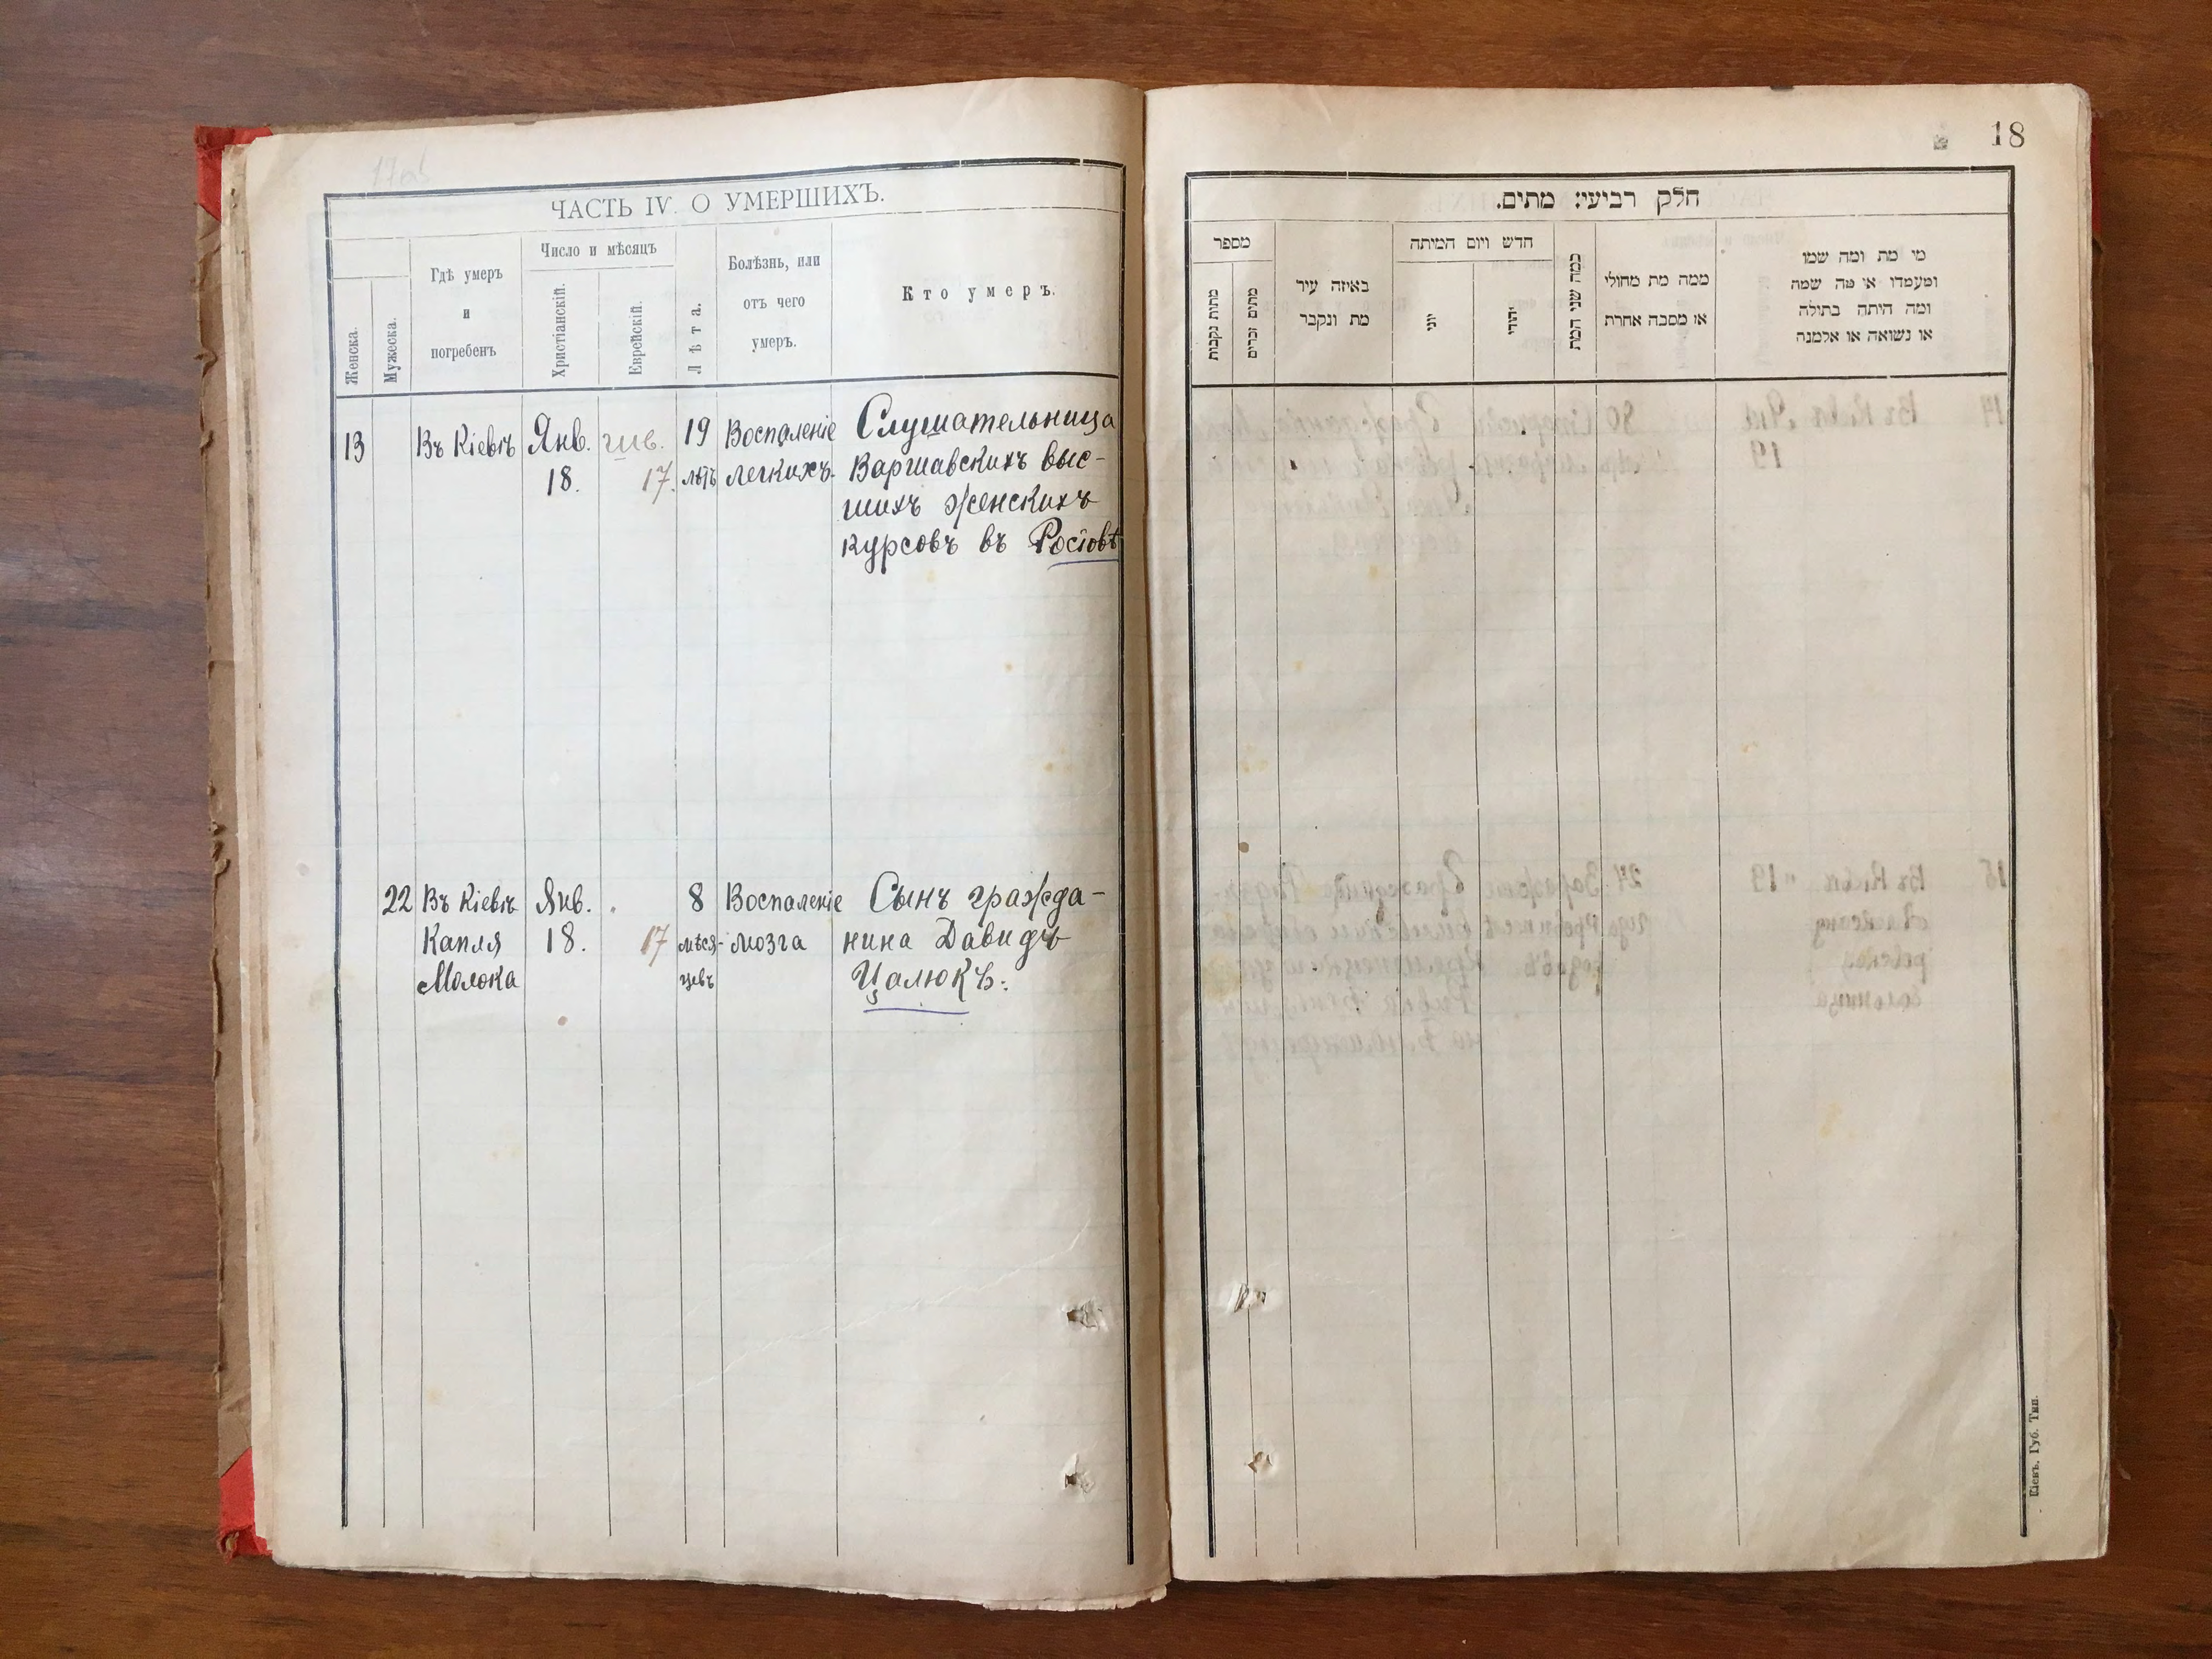 17об
ЧАСТЬ IV. О УМЕРШИХЪ.
Женска.
Мужеска.
Гдѣ умеръ
и
погребенъ
Число и мѣсяцъ
Христіанскій.
Еврейскій.
Лѣта.
Болѣзнь, или
отъ чего
умеръ.
Кто умеръ.
13 Въ Кіевѣ Янв. 19 Воспаленіе Слушательница
18. 17. лѣтъ легкихъ. Варшавскихъ выс-
шихъ женскихъ
курсовъ въ Ростовѣ
22 Въ Кіевѣ Янв. 8 Воспаленіе Сынъ гражда-
Капля 18. 17 мѣся- мозга нина Давидъ
Молока цевъ Цалюкъ.
18
חלק רביעי: מתים.
מספר
מתות נקבות
מתים זכרים
באיזה עיר
מת ונקבר
חדש ויום המיתה
יוני
יהודי
כמה שני המת
ממה מת מחולי
או מסבה אחרת
מי מת ומה שמו
ומעמדו או מה שמה
ומה היתה בתולה
או נשואה או אלמנה
Кіевъ. Губ. Тип.